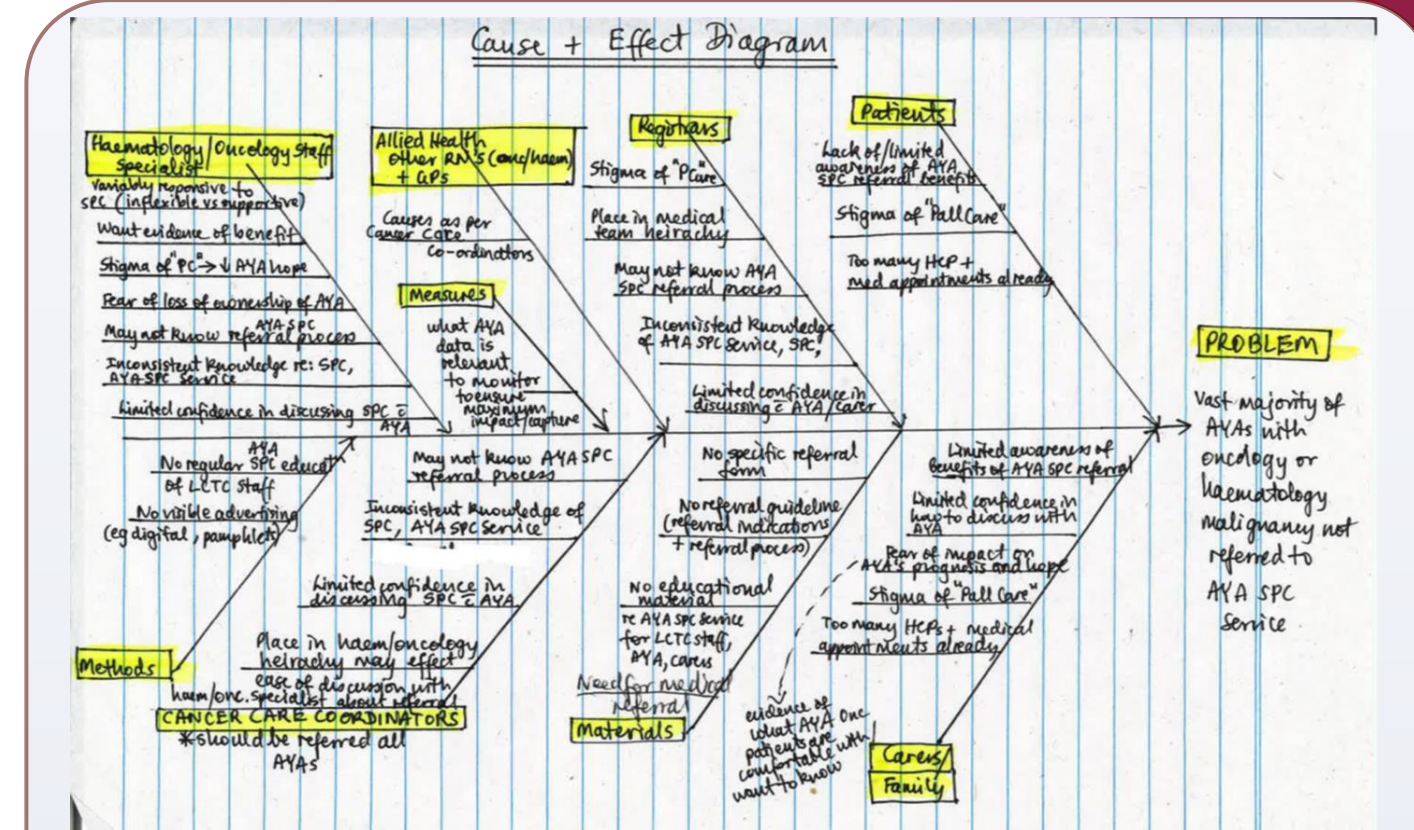 Cause + Effect Diagram
Haematology/Oncology Staff
Specialist
Variably responsive to
SPC (inflexible vs supportive)
Want evidence of benefit
Stigma of "PC" → ↓ AYA hope
Fear of loss of ownership of AYA
AYA SPC
May not know referral process
Inconsistent knowledge re: SPC,
AYA SPC Service
Limited confidence in discussing SPC c̄
AYA
Allied Health
other RN's (onc/haem)
+ GPs
Causes as per
Cancer Care
Co-ordinators
Measures
what AYA
data is
relevant
to monitor
to ensure
maximum
impact/capture
Registrars
Stigma of "PCare"
Place in medical
team heirachy
May not know AYA
SPC referral process
Inconsistent knowledge
of AYA SPC Service, SPC,
Limited confidence in
discussing c̄ AYA/carer
Patients
Lack of/limited
awareness of AYA
SPC referral benefits
Stigma of "Pall Care"
Too many HCP +
med appointments already
PROBLEM
Vast majority of
AYAs with
oncology or
haematology
malignancy not
referred to
AYA SPC
Service
AYA
No regular SPC educat
of LCTC staff
No visible advertising
(eg digital, pamphlets)
Methods
May not know AYA SPC
referral process
Inconsistent knowledge of
SPC, AYA SPC Service
Limited confidence in
discussing SPC c̄ AYA
Place in haem/oncology
heirachy may effect
ease of discussion with
haem/onc. specialist about referral
CANCER CARE COORDINATORS
*should be referred all
AYAs
No specific referral
form
No referral guideline
(referral indications
+ referral process)
No educational
material
re AYA SPC Service
for LCTC staff,
AYA, carers
Need for medical
referral
Materials
Limited awareness of
benefits of AYA SPC referral
Limited confidence in
how to discuss with
AYA
Fear of impact on
AYA's prognosis and hope
Stigma of "Pall Care"
Too many HCPs + medical
appointments already
evidence of
what AYA Onc
patients are
comfortable with
want to know
Carers/
Family